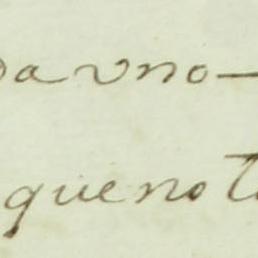 da vno
que no t